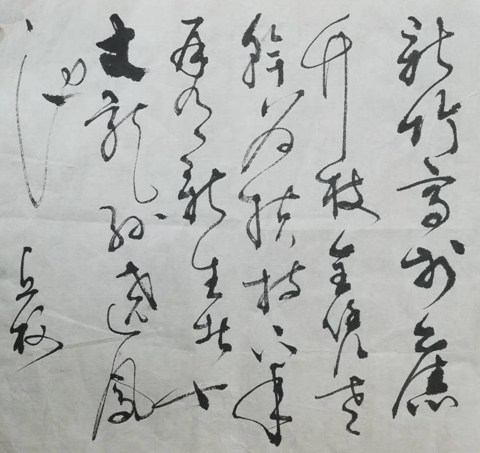 新竹高於舊
竹枝全憑老
幹為扶持下年
再有新生者十
丈龍孫遶鳳
池